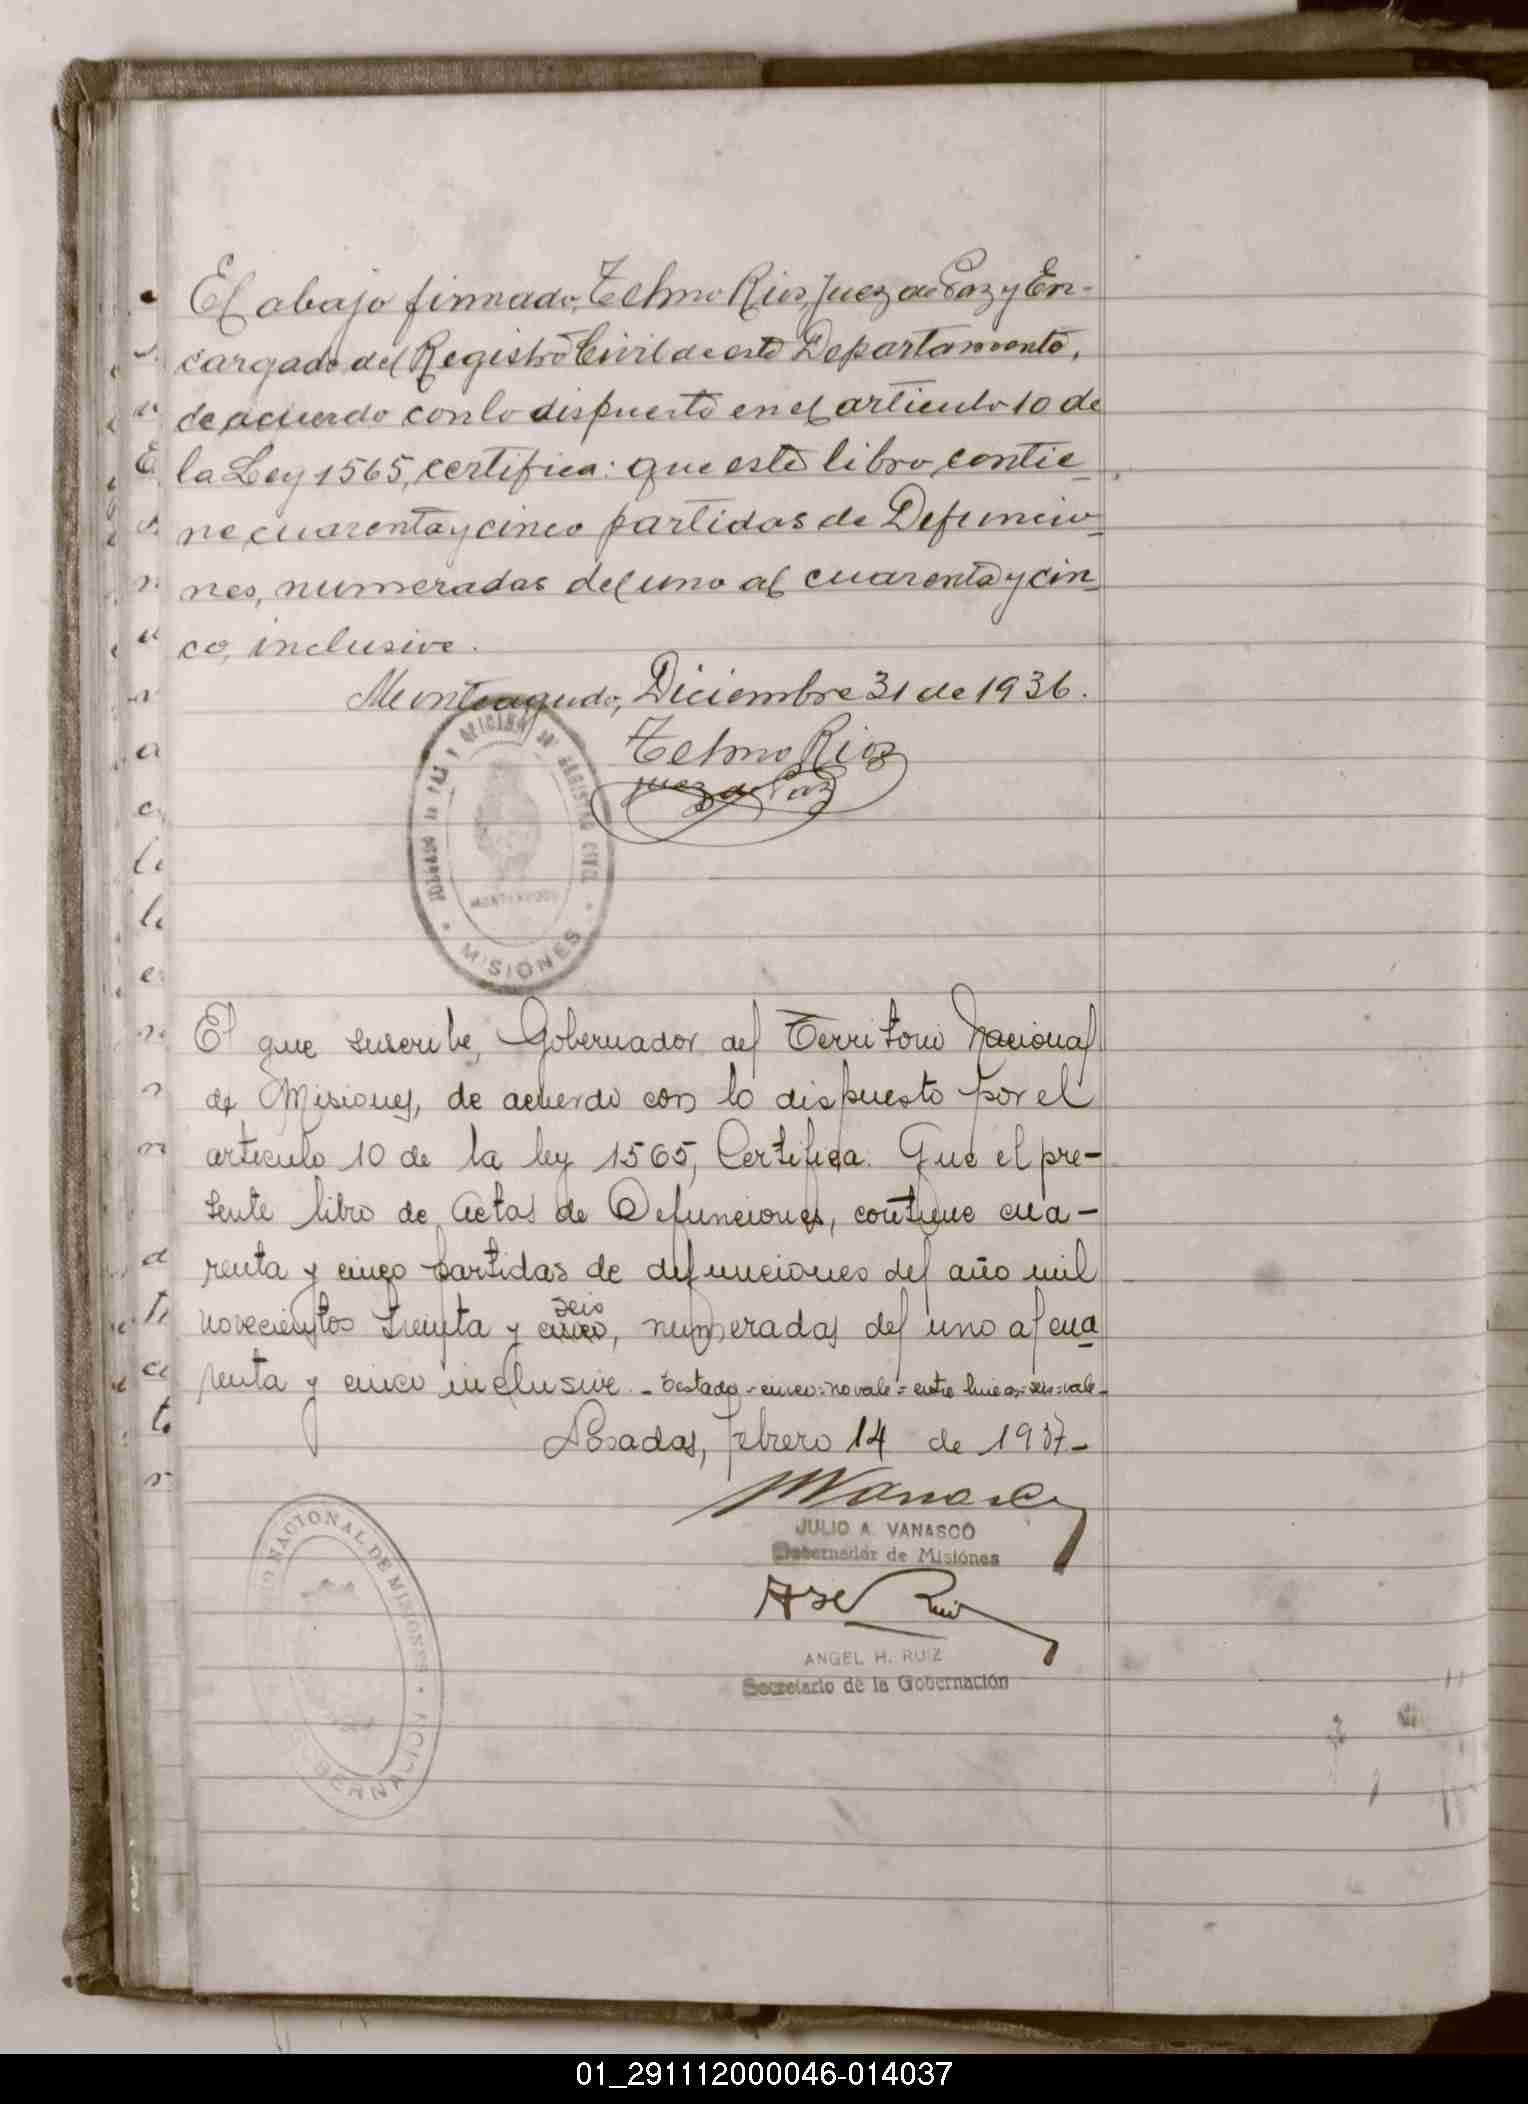 El abajo firmado, Telmo Rios, Juez de Paz y En-
cargado del Registro Civil de este Departamento,
de acuerdo con lo dispuesto en el articulo 10 de
la Ley 1565, certifica: que este libro contie_
ne cuarenta y cinco partidas de Defuncio_
nes, numeradas del uno al cuarenta y cin_
co, inclusive.
Monteagudo, Diciembre 31 de 1936.
Telmo Rios
Juez de Paz
JUZGADO DE PAZ Y OFICINA DEL REGISTRO CIVIL
MONTEAGUDO
MISIONES
El que suscribe, Gobernador del Territorio Nacional
de Misiones, de acuerdo con lo dispuesto por el
articulo 10 de la ley 1565, Certifica: Que el pre-
sente libro de Actas de Defunciones, contiene cua-
renta y cinco partidas de defunciones del año mil
seis
novecientos treinta y cinco, numeradas del uno al cua
renta y cinco inclusive. - Testado - cinco = no vale = entre lineas = seis = vale -
Posadas, febrero 14 de 1937.-
JULIO A. VANASCO
Gobernador de Misiones
Ruiz
ANGEL H. RUIZ
Secretario de la Gobernación
NACIONAL DE MISIONES
GOBERNACION
01_291112000046-014037